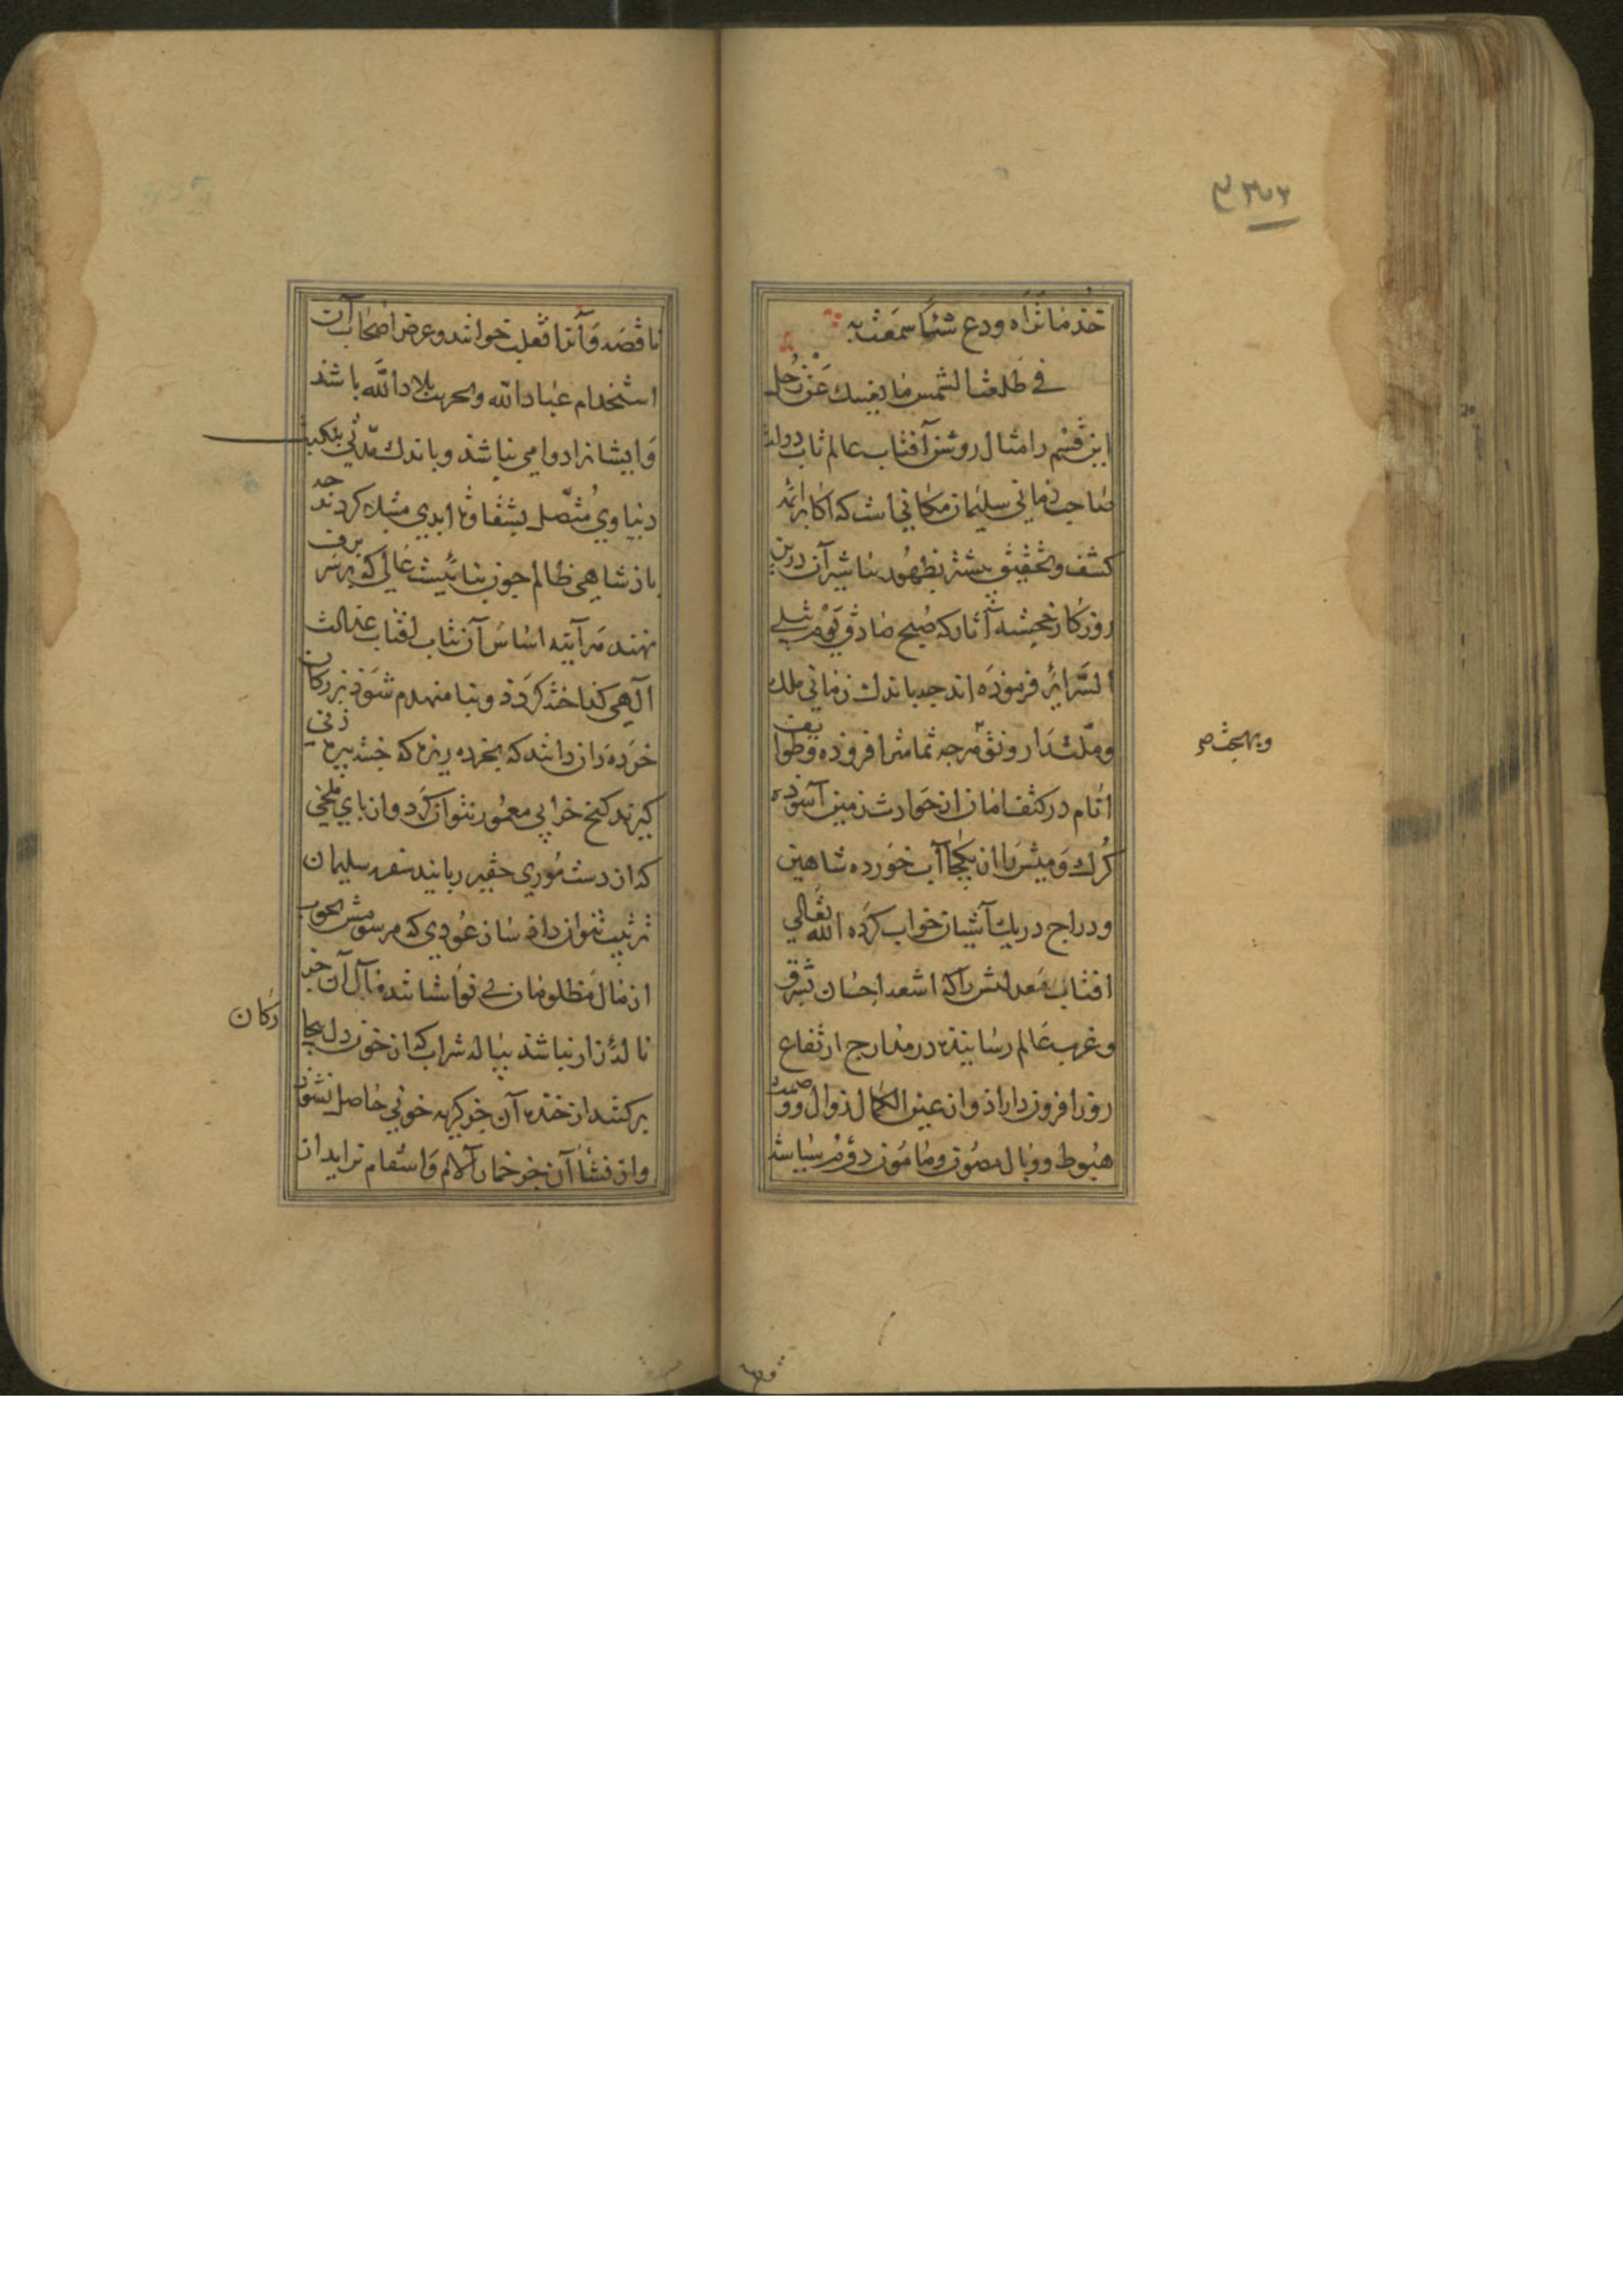 خذ ما تراه ودع شیئا سمعت به
في طلعة الشمس ما یغنیك عن زحل
این قسم را مثال روشن آفتاب عالم تاب دولت
صاحب زمانی سلیمان مکانی است که اکابر ائمه
کشف وتحقیق پیشتر بظهور تباشیر آن درین
روزکار خجسته آثار که صبح صادق یوم تبلی
السرایر فرموده اند چه باندك زمانی ملك
وملت را رونق هر چه تمامتر افزوده وطوایف
انام در کنف امان از حوادث زمین آسوده
کرك ومیش با ان یکجا آب خورده شاهین
ودراج در یك آشیان خواب کرده الله تعالی
افتاب معدلتش را که اشعه احسان بشرق
وغرب عالم رسانیده در مدارج ارتفاع
روز افزون داراد واز عین الکمال زوال ووصمت
هبوط ووبال مصون ومامون دوم سیاست
وبهجت صح
ناقصه وآنرا تغلب خوانند وغرض اصحاب آن
استخدام عباد الله وتخریب بلاد الله باشد
وایشانرا دوامی نباشد وباندك مدتی بنکبت
دنیاوی متصل بشقاوت ابدی مبتلا کردند چه
پادشاهی ظالم چون بنائیست عالی که بر سر برف
نهند هر آینه اساس آن بتاب افتاب عدالت
آلهی کداخته کردد وبنا منهدم شود بزرکان
خرده دان دانند که بخرده ریزه که خسته پیره زنی
کیرند کنج خرابی معمور نتوان کرد واز پای ملخی
که از دست موری حقیر ربایند سفره سلیمان
ترتیب نتوان داد ساز عودی که مرسومش بچوب
از مال مظلومان بی نوا ستانند مآل آن جز
ناله زار نباشد پیاله شراب که از خون دل بیچا
رکان
بر کشند از خنده آن جز کریه خونی حاصل نشود
واز نشأ آن جز خمار آلام واسقام نزاید ان